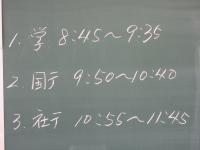 1. 学 8:45〜9:35
2. 国テ 9:50〜10:40
3. 社テ 10:55〜11:45